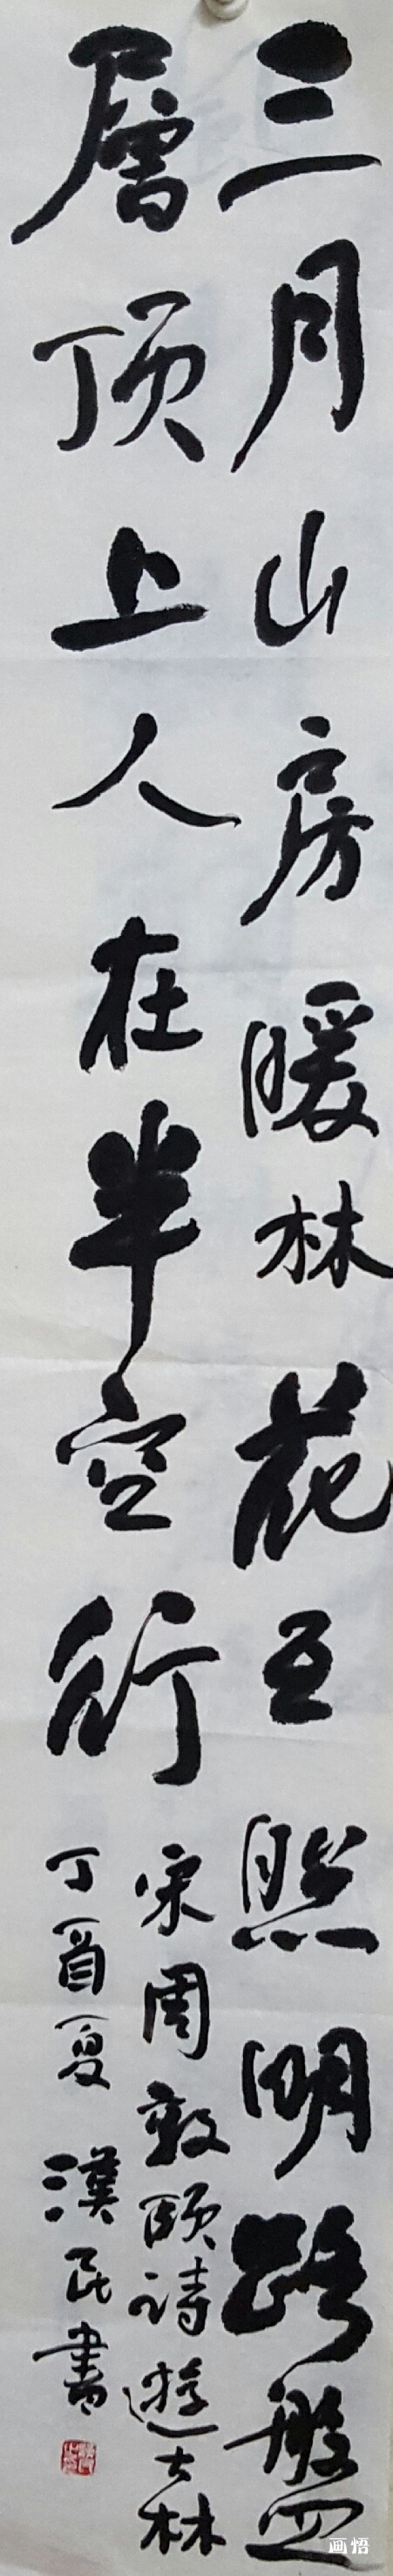 三月山房暖林花互照明路盤
層顶上人在半空行
宋周敦颐詩遊大林
丁酉夏漢民書
画悟